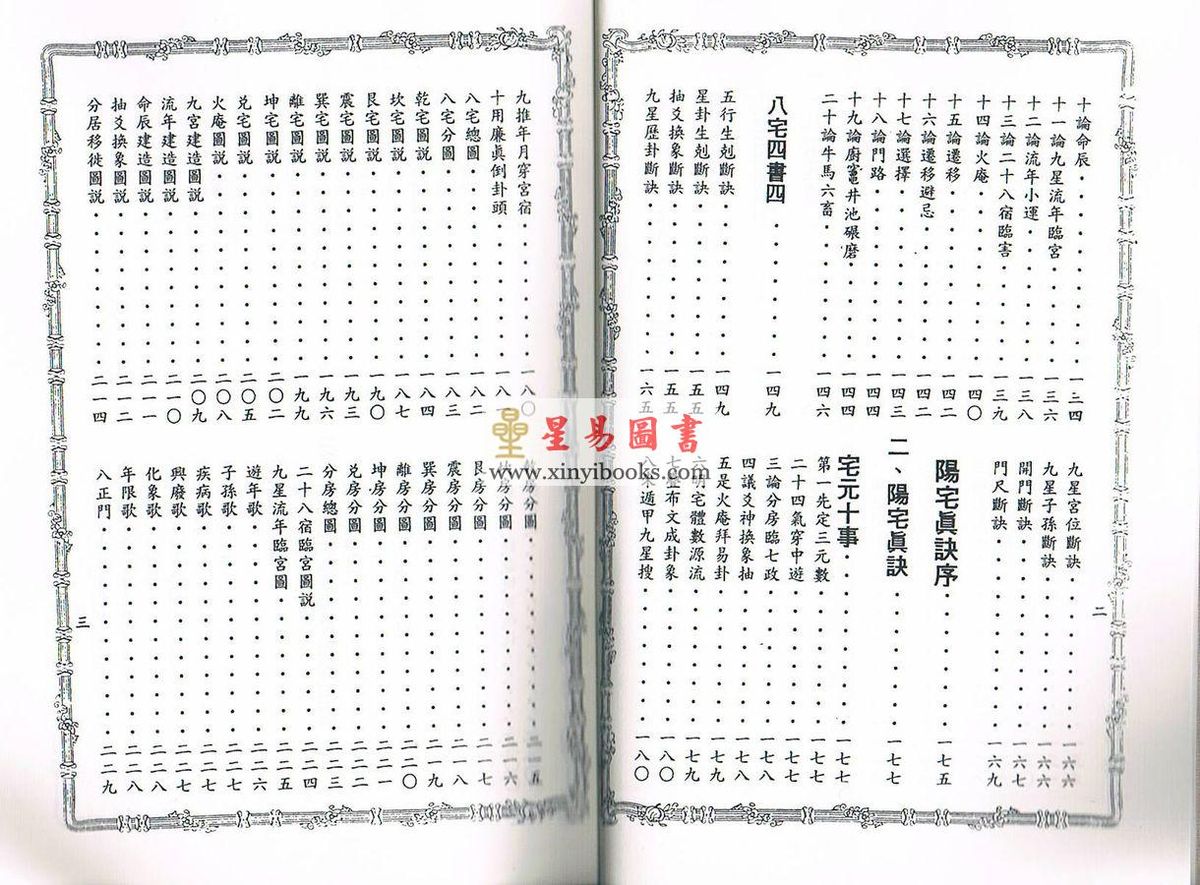 十論命辰············一三四
十一論九星流年臨宮············一三六
十二論流年小運············一三八
十三論二十八宿臨害············一三九
十四論火庵············一四〇
十五論遷移············一四二
十六論遷移避忌············一四二
十七論選擇············一四三
十八論門路············一四四
十九論廚竈井池碾磨············一四四
二十論牛馬六畜············一四六
八宅四書四············一四九
五行生剋斷訣············一四九
星卦生剋斷訣············一五五
抽爻換象斷訣············一五五
九星歷卦斷訣············一六五
九星宮位斷訣············一六六
九星子孫斷訣············一六六
開門斷訣············一六七
門尺斷訣············一六九
陽宅眞訣序············一七五
二、陽宅眞訣············一七七
宅元十事············一七七
第一先定三元數············一七七
二十四氣穿中遊············一七七
三論分房臨七政············一七八
四議爻神換象抽············一七八
五是火庵拜易卦············一七九
六明宅體數源流············一七九
七 布文成卦象············一八〇
八 遁甲九星搜············一八〇
二
九推年月穿宮宿············一八〇
十用廉眞倒卦頭············一八
八宅總圖············一八二
八宅分圖············一八三
乾宅圖說············一八四
坎宅圖說············一八七
艮宅圖說············一九〇
震宅圖說············一九三
巽宅圖說············一九六
離宅圖說············一九九
坤宅圖說············二〇二
兌宅圖說············二〇五
火庵圖說············二〇八
九宮建造圖說············二〇九
流年建造圖說············二一〇
命辰建造圖說············二一一
抽爻換象圖說············二一二
分居移徙圖說············二一四
房分圖············二一五
房分圖············二一六
艮房分圖············二一七
震房分圖············二一八
巽房分圖············二一九
離房分圖············二二〇
坤房分圖············二二一
兌房分圖············二二二
分房總圖············二二三
二十八宿臨宮圖說············二二四
九星流年臨宮圖············二二五
遊年歌············二二六
子孫歌············二二七
疾病歌············二二七
興廢歌············二二八
化象歌············二二八
年限歌············二二八
八正門············二二九
三
星易圖書
www.xinyibooks.com